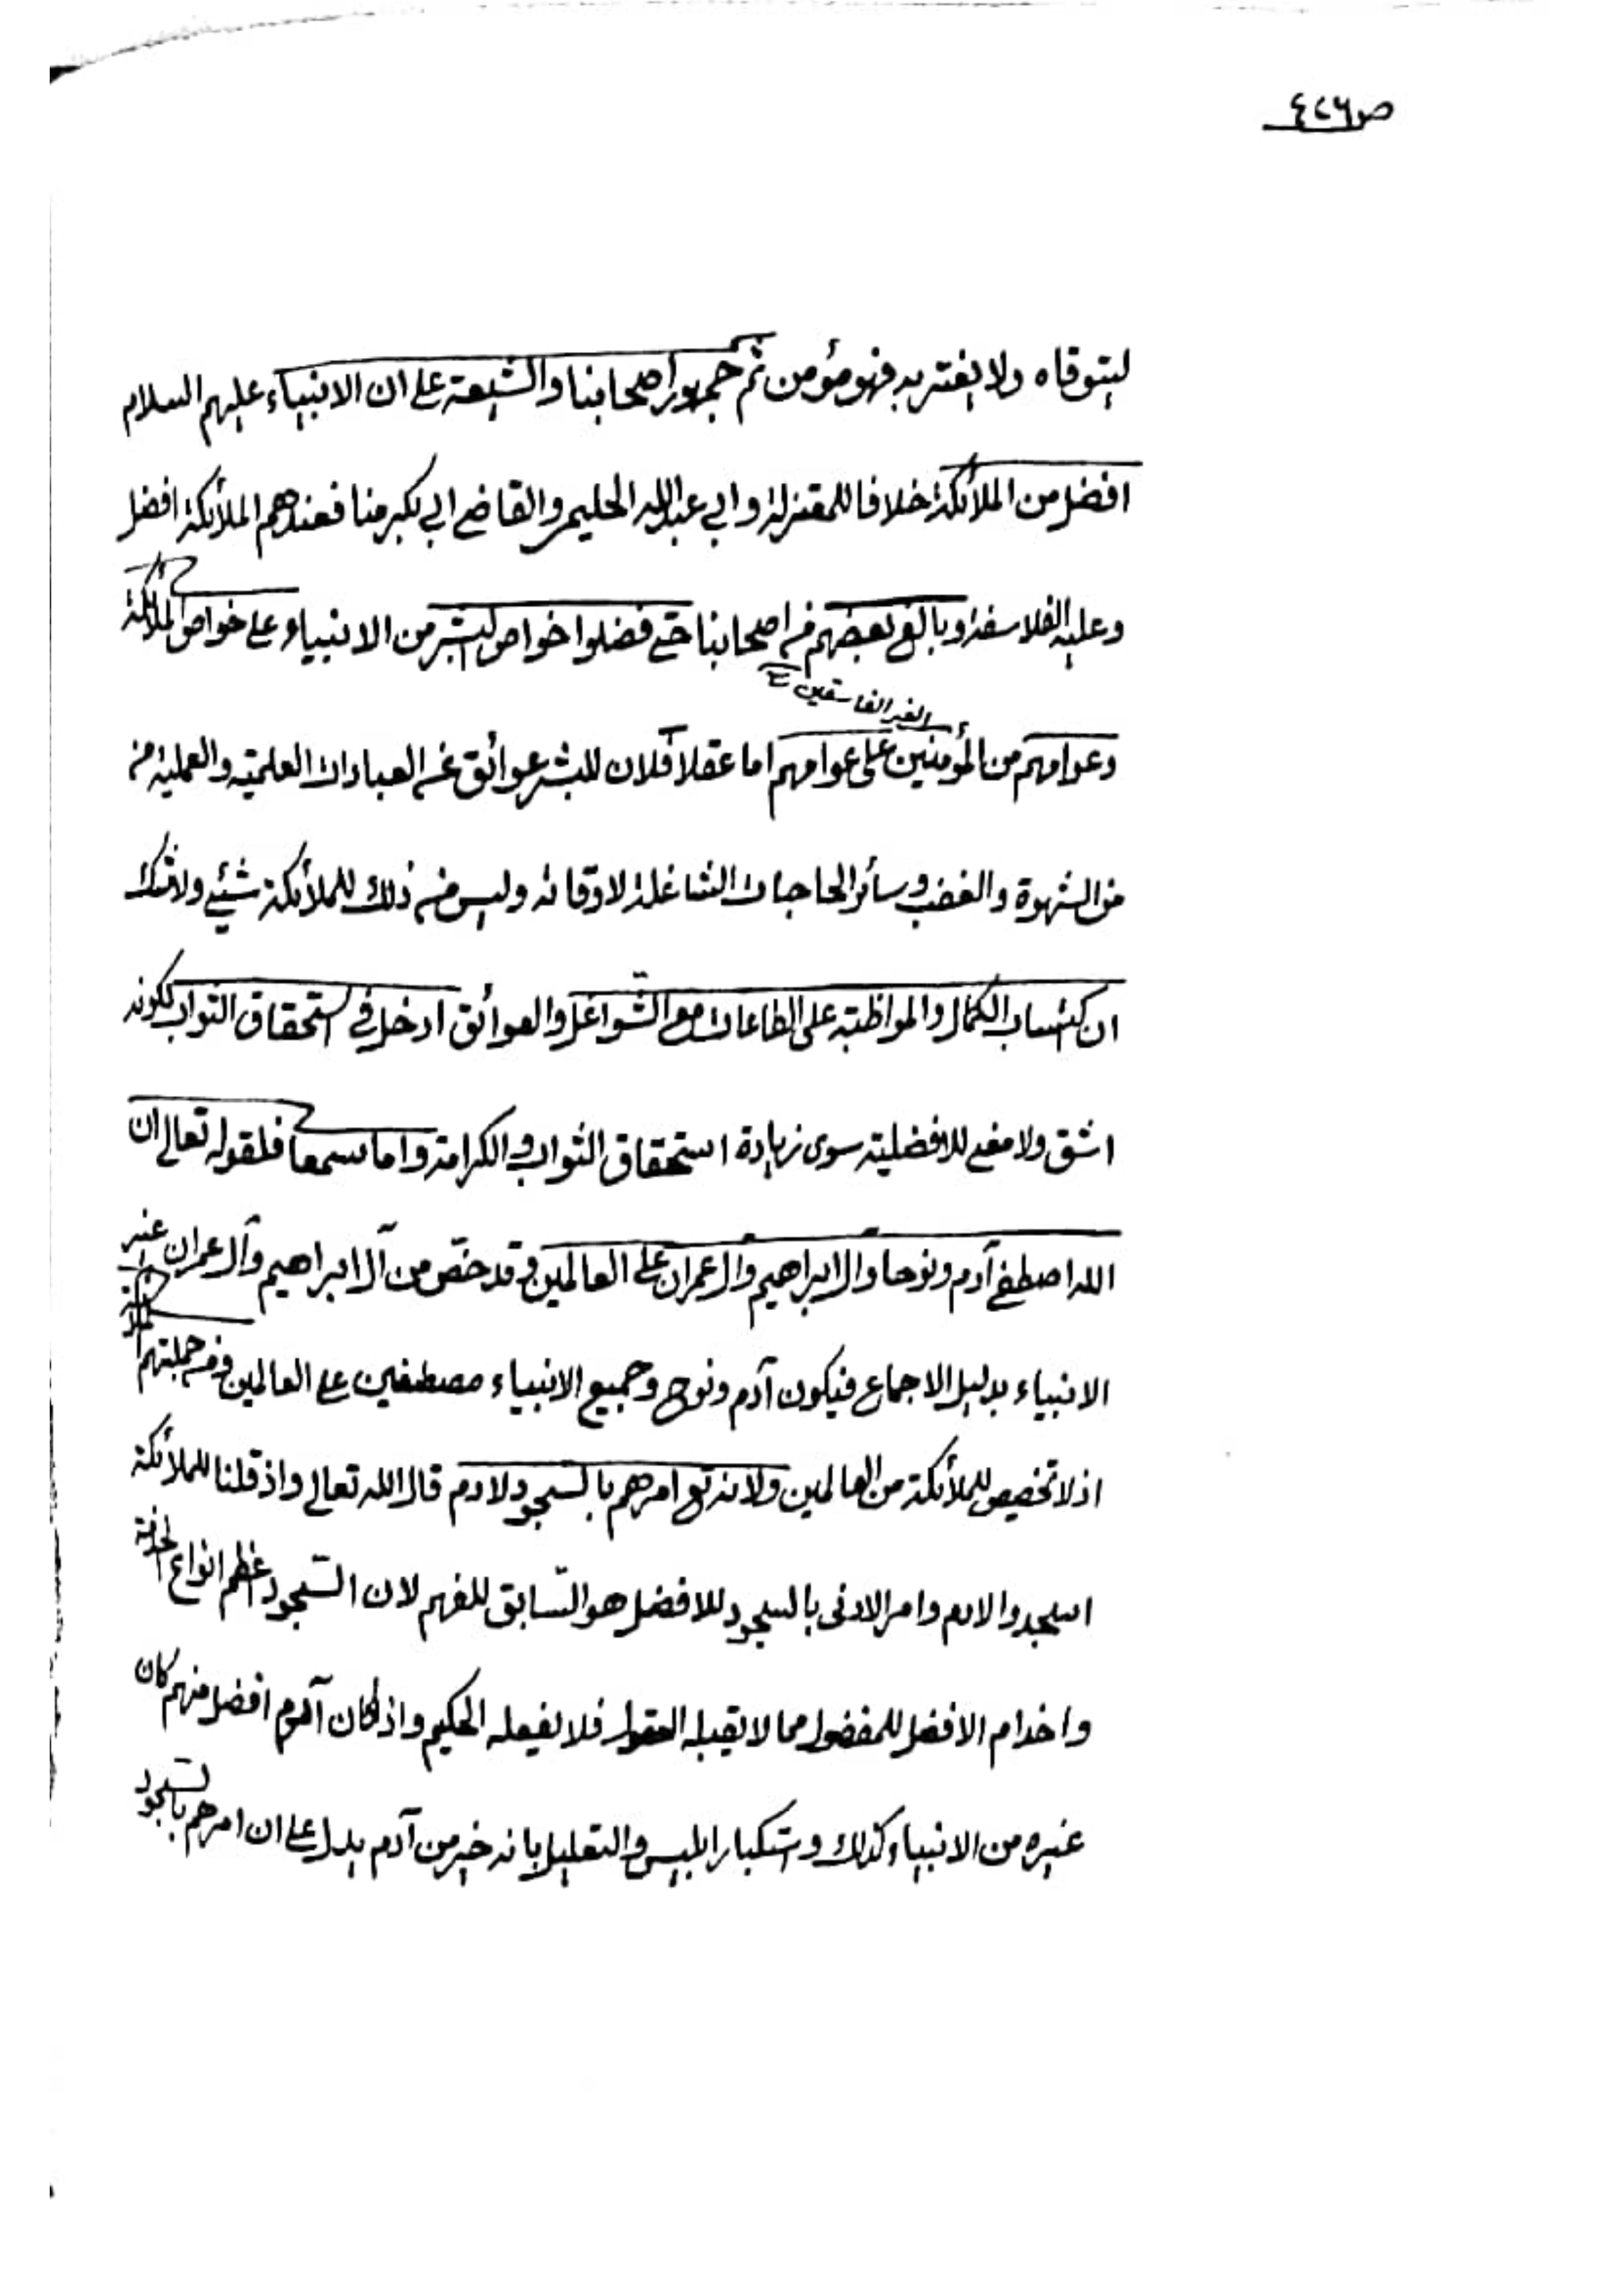 ص٤٢٦
ليتوقاه ولا يغتر به فهو مؤمن ثم جمهور أصحابنا والشيعة على ان الانبياء عليهم السلام
افضل من الملأئكة خلافا للمعتزلة وابي عبدالله الحليمي والقاضي ابي بكر منا فعندهم الملأئكة افضل
وعليه الفلاسفة وبالغ بعضهم من اصحابنا حتى فضلوا خواص البشر من الانبياء على خواص الملائكة
الغير الفاسقين
وعوامهم من المؤمنين على عوامهم اما عقلا فلان للبشر عوائق عن العبادات العلمية والعملية من
من الشهوة والغضب وسائر الحاجات الشاغلة لاوقاته وليس من ذلك للملأئكة شيئ ولا شك
ان كتساب الكمال والمواظبة على الطاعات مع الشواغل والعوائق ادخل في استحقاق الثواب لكونه
اشق ولا معنى للافضلية سوى زيادة استحقاق الثواب والكرامة واما سمعا فلقوله تعالى ان
الله اصطفى آدم ونوحا وال ابراهيم وال عمران على العالمين وقد خصّ من آل ابراهيم وآل عمران غير
الانبياء بدليل الاجماع فيكون آدم ونوح وجميع الانبياء مصطفين على العالمين ومن جملتهم الملائكة
اذ لا تخصيص للملأئكة من العالمين ولانه تع امرهم بالسجود لادم قال الله تعالى واذ قلنا للملأئكة
اسجدوا لادم وامر الادنى بالسجود للافضل هو السّابق للفهم لان السّجود اعظم انواع الخدمة
واخدام الافضل للمفضول مما لا يقبله العقول فلا يفعله الحكيم واذ كان آدم افضل منهم كان
غيره من الانبياء كذلك وستكبار ابليس والتعليل بانه خير من آدم يدل على ان امرهم بالسّجود